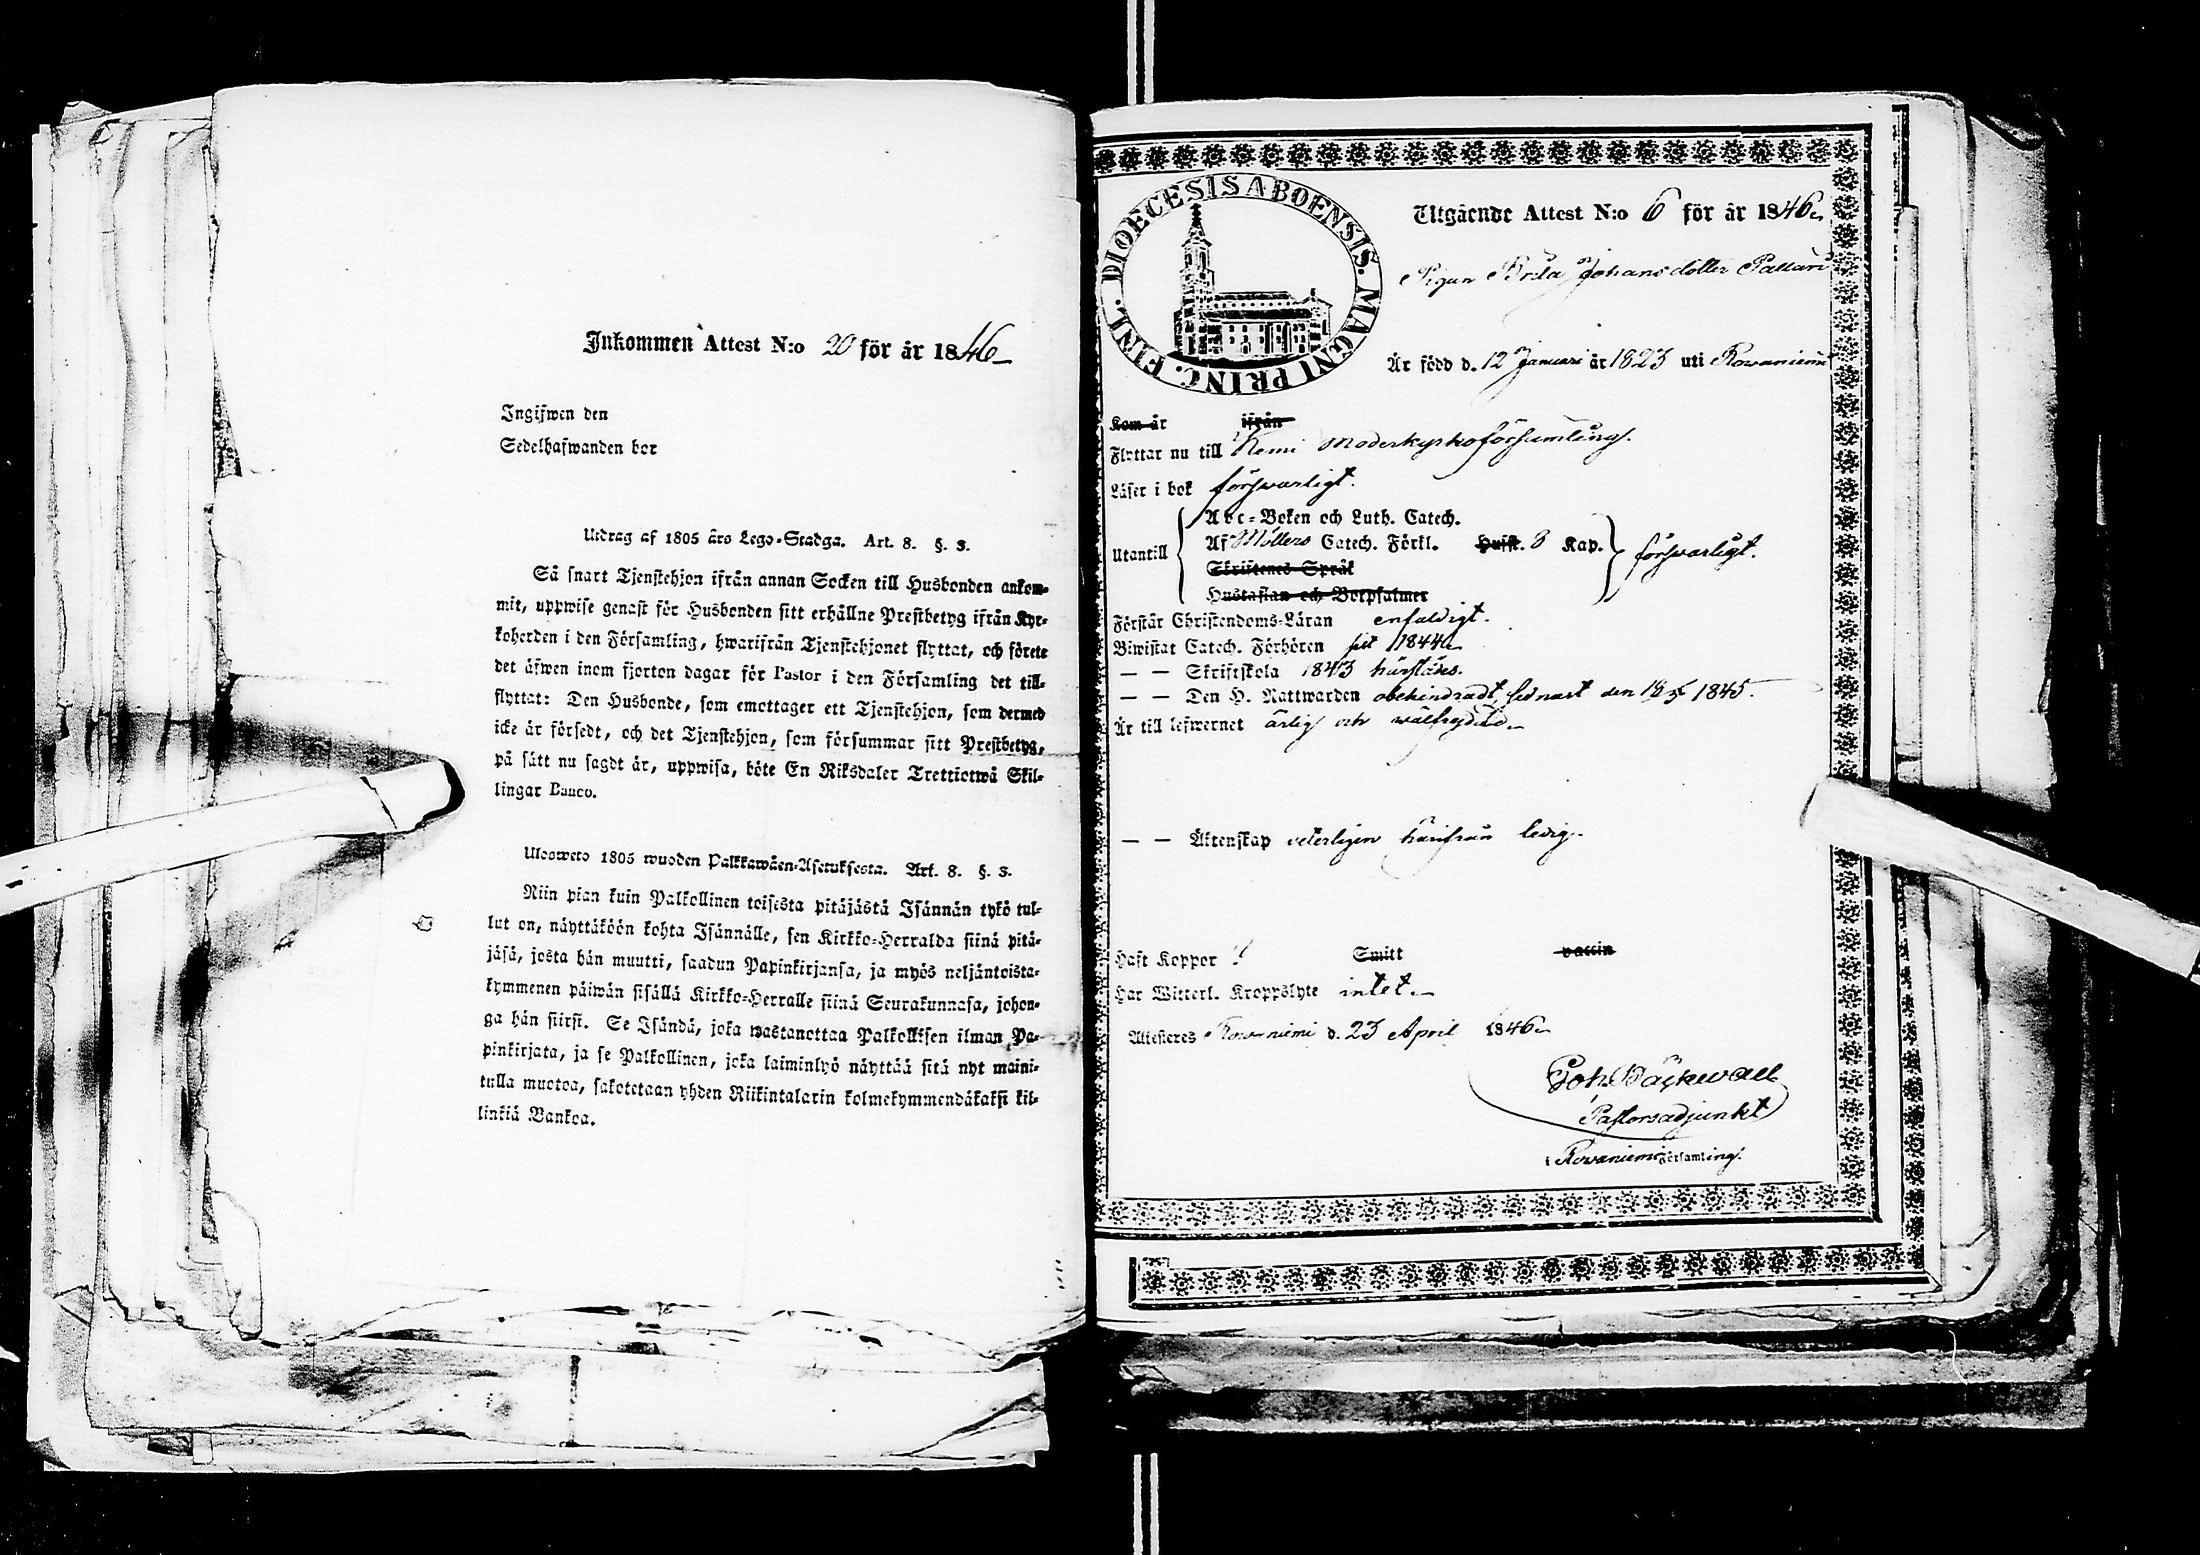 Inkommen Attest N:o 20 för år 1846
Ingifwen den
Sedelhafwanden bor
Utdrag af 1805 års Lego-Stadga. Art. 8. §. 3.
Så snart Tjenstehjon ifrån annan Socken till Husbonden ankom-
mit, uppwise genast för Husbonden sitt erhållne Prestbetyg ifrån Kyr-
koherden i den Församling, hwarifrån Tjenstehjonet flyttat, och förete
det äfwen inom fjorton dagar för Pastor i den Församling det till-
flyttat: Den Husbonde, som emottager ett Tjenstehjon, som dermed
icke är försedt, och det Tjenstehjon, som försummar sitt Prestbetyg,
på sätt nu sagdt är, uppwisa, böte En Riksdaler Trettiotwå Skil-
lingar Banco.
Ulosweto 1805 wuoden Palkkawäen-Asetuksesta. Art. 8. §. 3.
Niin pian kuin Palkollinen toisesta pitäjästä Isännän tykö tul-
lut on, näyttäköön kohta Isännälle, sen Kirkko-Herralda siinä pitä-
jäsä, josta hän muutti, saadun Papinkirjansa, ja myös neljäntoista-
kymmenen päiwän sisällä Kirkko-Herralle siinä Seurakunnasa, johon-
ga hän siirsi. Se Isändä, joka wastanottaa Palkollisen ilman Pa-
pinkirjata, ja se Palkollinen, joka laiminlyö näyttää sitä nyt maini-
tulla muotoa, sakotetaan yhden Riikintalarin kolmekymmendäkaksi kil-
linkiä Bankoa.
DIOECESIS ABOENSIS. MAGNI PRINC. FINL.
Utgående Attest N:o 6 för år 1846
Pigan Brita Johansdotter Pallari
Är född d. 12 Januari år 1823 uti Rowaniemi
Kom år ifrån
Flyttar nu till Kemi Moderkyrkoförsamling.
Läser i bok försvarligt.
Abc-Boken och Luth. Catech.
Utantill Af Möllers Catech. Förkl. Husst. 8 Kap. försvarligt.
Skriftenes Språk
Hustaflan och Botpsalmer
Förstår Christendoms-Läran enfaldigt.
Biwistat Catech. Förhören sist 1844
— — Skriftskola 1843 härstädes.
— — Den H. Nattwarden obehindradt, sednast den 1845.
Är till lefwernet ärlig och wälfrejdad
— — Äktenskap veterligen härifrån ledig.
Haft Koppor ? Smitt vaccin
Har Witterl. Kroppslyte intet.
Attesteres Rowaniemi d. 23 April 1846
Joh. Bäckwall
Pastorsadjunkt
i Rovaniemi församling.